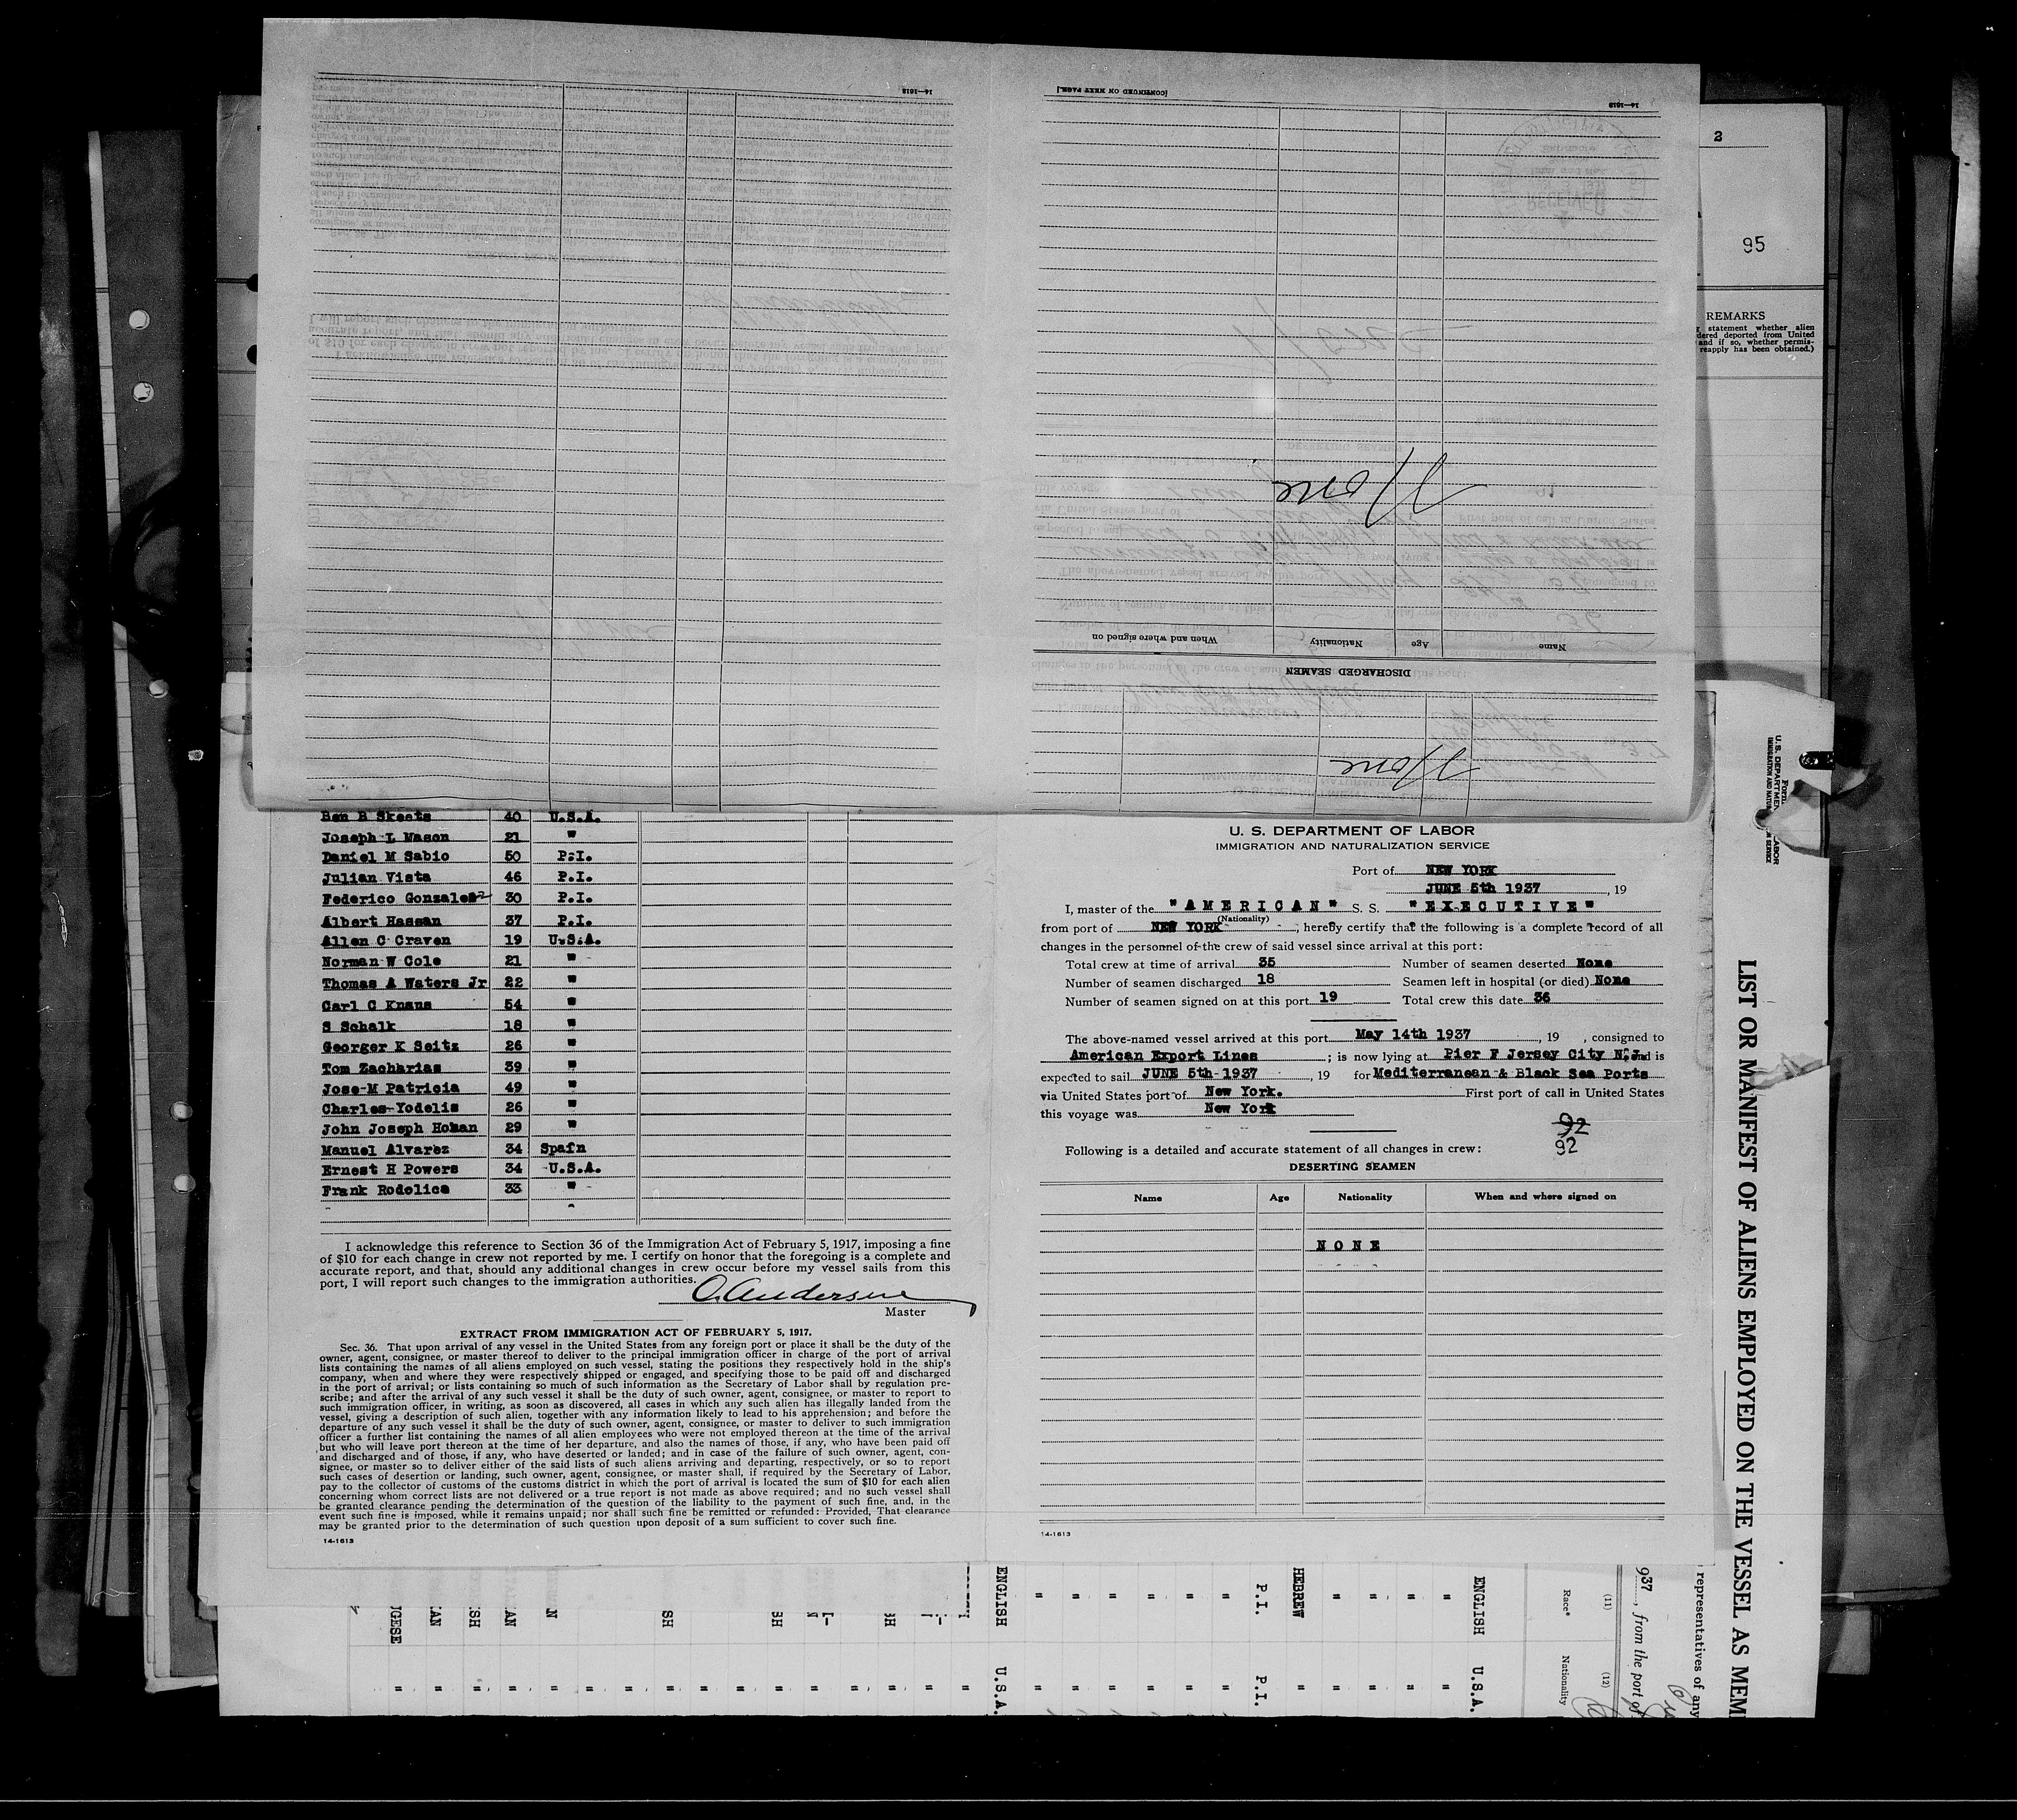 14—1613
[CONTINUED ON NEXT PAGE.]
14—1613
None
Name
Age
Nationality
When and where signed on
DISCHARGED SEAMEN
None
2
95
REMARKS
statement whether alien
dered deported from United
and if so, whether permis-
reapply has been obtained.)
Ben B Skeets 40 U.S.A.
Joseph L Mason 21 "
Daniel M Sabio 50 P.I.
Julian Vista 46 P.I.
Federico Gonzalez 30 P.I.
Albert Hassan 37 P.I.
Allen C Craven 19 U.S.A.
Norman W Cole 21 "
Thomas A Waters Jr 22 "
Carl C Knans 54 "
S Schalk 18 "
Georger K Seitz 26 "
Tom Zacharias 39 "
Jose M Patricia 49 "
Charles Yodelis 26 "
John Joseph Hohan 29 "
Manuel Alvarez 34 Spain
Ernest H Powers 34 U.S.A.
Frank Rodolica 33 "
I acknowledge this reference to Section 36 of the Immigration Act of February 5, 1917, imposing a fine
of $10 for each change in crew not reported by me. I certify on honor that the foregoing is a complete and
accurate report, and that, should any additional changes in crew occur before my vessel sails from this
port, I will report such changes to the immigration authorities.
O. Andersen
Master
EXTRACT FROM IMMIGRATION ACT OF FEBRUARY 5, 1917.
Sec. 36. That upon arrival of any vessel in the United States from any foreign port or place it shall be the duty of the
owner, agent, consignee, or master thereof to deliver to the principal immigration officer in charge of the port of arrival
lists containing the names of all aliens employed on such vessel, stating the positions they respectively hold in the ship's
company, when and where they were respectively shipped or engaged, and specifying those to be paid off and discharged
in the port of arrival; or lists containing so much of such information as the Secretary of Labor shall by regulation pre-
scribe; and after the arrival of any such vessel it shall be the duty of such owner, agent, consignee, or master to report to
such immigration officer, in writing, as soon as discovered, all cases in which any such alien has illegally landed from the
vessel, giving a description of such alien, together with any information likely to lead to his apprehension; and before the
departure of any such vessel it shall be the duty of such owner, agent, consignee, or master to deliver to such immigration
officer a further list containing the names of all alien employees who were not employed thereon at the time of the arrival
but who will leave port thereon at the time of her departure, and also the names of those, if any, who have been paid off
and discharged and of those, if any, who have deserted or landed; and in case of the failure of such owner, agent, con-
signee, or master so to deliver either of the said lists of such aliens arriving and departing, respectively, or so to report
such cases of desertion or landing, such owner, agent, consignee, or master shall, if required by the Secretary of Labor,
pay to the collector of customs of the customs district in which the port of arrival is located the sum of $10 for each alien
concerning whom correct lists are not delivered or a true report is not made as above required; and no such vessel shall
be granted clearance pending the determination of the question of the liability to the payment of such fine, and, in the
event such fine is imposed, while it remains unpaid; nor shall such fine be remitted or refunded: Provided, That clearance
may be granted prior to the determination of such question upon deposit of a sum sufficient to cover such fine.
14-1613
U. S. DEPARTMENT OF LABOR
IMMIGRATION AND NATURALIZATION SERVICE
Port of NEW YORK
JUNE 5th 1937, 19
I, master of the "AMERICAN" S. S. "EXECUTIVE"
(Nationality)
from port of NEW YORK, hereby certify that the following is a complete record of all
changes in the personnel of the crew of said vessel since arrival at this port:
Total crew at time of arrival 35 Number of seamen deserted None
Number of seamen discharged 18 Seamen left in hospital (or died) None
Number of seamen signed on at this port 19 Total crew this date 36
The above-named vessel arrived at this port May 14th 1937, 19 , consigned to
American Export Lines; is now lying at Pier F Jersey City N.J. and is
expected to sail JUNE 5th 1937, 19 for Mediterranean & Black Sea Ports
via United States port of New York. First port of call in United States
this voyage was New York
92
92
Following is a detailed and accurate statement of all changes in crew:
DESERTING SEAMEN
Name Age Nationality When and where signed on
NONE
14-1613
Form
U. S. DEPARTMEN
LABOR
IMMIGRATION AND NATU
SERVICE
LIST OR MANIFEST OF ALIENS EMPLOYED ON THE VESSEL AS MEM
representatives of any
937, from the port of
(11) (12)
Race* Nationality
ENGLISH U.S.A.
" "
" "
" "
" "
HEBREW "
P.I. P.I.
" "
" "
" "
" "
" "
" "
ENGLISH U.S.A.